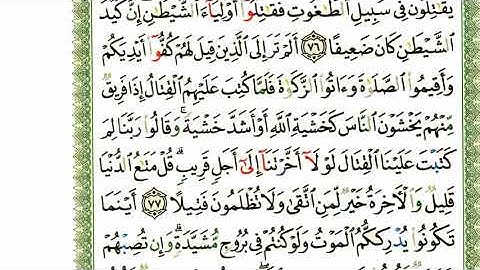 يُقَٰتِلُونَ فِي سَبِيلِ ٱلطَّٰغُوتِ فَقَٰتِلُوٓا۟ أَوْلِيَآءَ ٱلشَّيْطَٰنِ إِنَّ كَيْدَ
ٱلشَّيْطَٰنِ كَانَ ضَعِيفًا ﴿٧٦﴾ أَلَمْ تَرَ إِلَى ٱلَّذِينَ قِيلَ لَهُمْ كُفُّوٓا۟ أَيْدِيَكُمْ
وَأَقِيمُوا۟ ٱلصَّلَوٰةَ وَءَاتُوا۟ ٱلزَّكَوٰةَ فَلَمَّا كُتِبَ عَلَيْهِمُ ٱلْقِتَالُ إِذَا فَرِيقٌ
مِّنْهُمْ يَخْشَوْنَ ٱلنَّاسَ كَخَشْيَةِ ٱللَّهِ أَوْ أَشَدَّ خَشْيَةً ۚ وَقَالُوا۟ رَبَّنَا لِمَ
كَتَبْتَ عَلَيْنَا ٱلْقِتَالَ لَوْلَآ أَخَّرْتَنَآ إِلَىٰٓ أَجَلٍ قَرِيبٍ ۗ قُلْ مَتَٰعُ ٱلدُّنْيَا
قَلِيلٌ وَٱلْءَاخِرَةُ خَيْرٌ لِّمَنِ ٱتَّقَىٰ وَلَا تُظْلَمُونَ فَتِيلًا ﴿٧٧﴾ أَيْنَمَا
تَكُونُوا۟ يُدْرِككُّمُ ٱلْمَوْتُ وَلَوْ كُنتُمْ فِي بُرُوجٍ مُّشَيَّدَةٍ ۗ وَإِن تُصِبْهُمْ